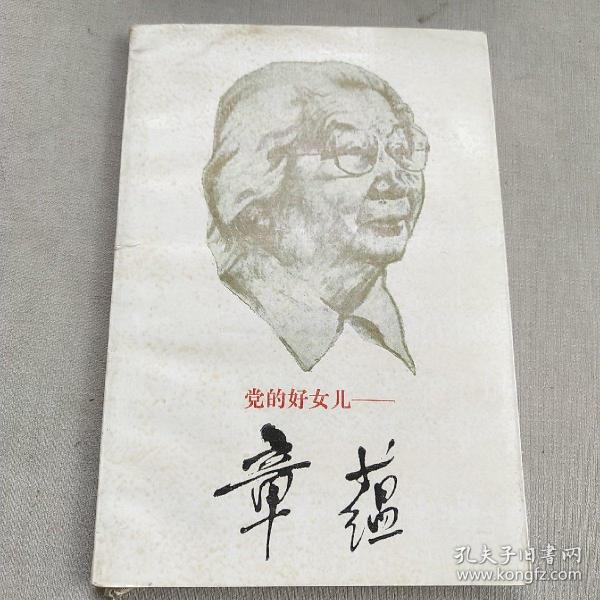 党的好女儿——
章蕴
孔夫子旧书网
www.kongfz.com